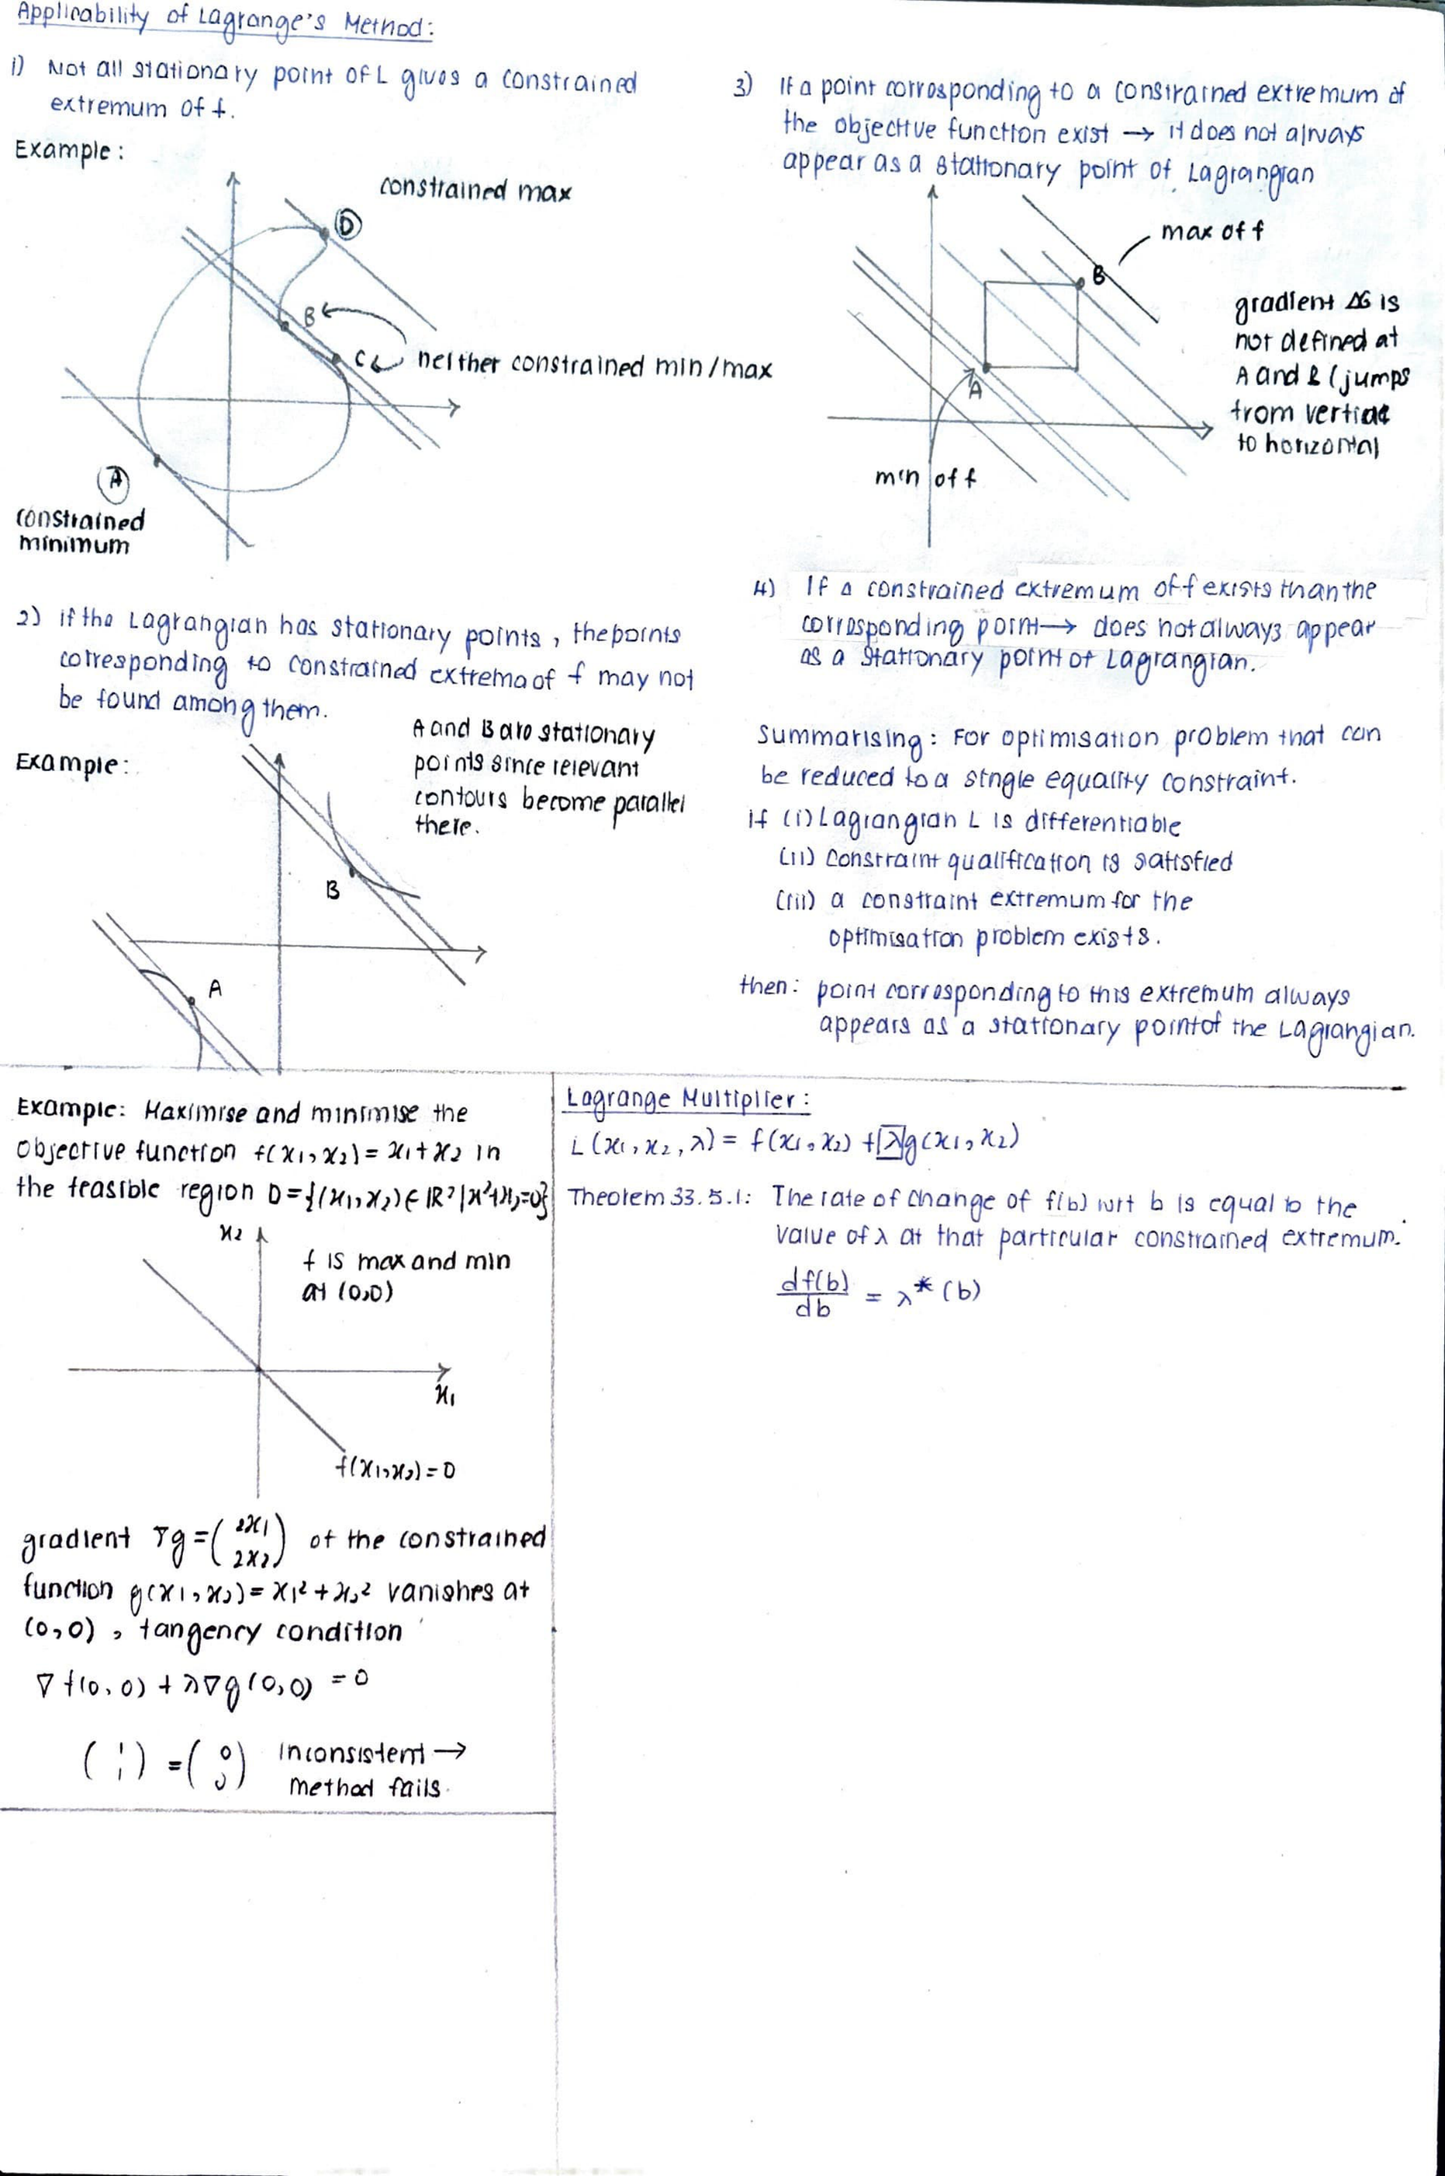 Applicability of Lagrange's Method:
1) Not all stationary point of L gives a constrained
extremum of f.
Example:
constrained max
D
B
C
neither constrained min/max
A
constrained
minimum
2) if the Lagrangian has stationary points, the points
corresponding to constrained extrema of f may not
be found among them.
Example:
A and B are stationary
points since relevant
contours become parallel
there.
B
A
3) If a point corresponding to a constrained extremum of
the objective function exist → it does not always
appear as a stationary point of Lagrangian
max of f
B
gradient ΔG is
not defined at
A and B (jumps
from vertical
to horizontal
A
min of f
4) If a constrained extremum of f exists than the
corresponding point → does not always appear
as a stationary point of Lagrangian.
Summarising: For optimisation problem that can
be reduced to a single equality constraint.
if (i) Lagrangian L is differentiable
(ii) constraint qualification is satisfied
(iii) a constraint extremum for the
optimisation problem exists.
then: point corresponding to this extremum always
appears as a stationary point of the Lagrangian.
Example: Maximise and minimise the
objective function f(x₁, x₂) = x₁ + x₂ in
the feasible region D = {(x₁, x₂) ∈ ℝ² | x²+x₂=0}
x₂
f is max and min
at (0,0)
x₁
f(x₁,x₂) = 0
gradient ∇g = (2x₁ 2x₂) of the constrained
function g(x₁, x₂) = x₁² + x₂² vanishes at
(0,0), tangency condition
∇f(0,0) + λ∇g(0,0) = 0
(1 1) = (0 0) inconsistent →
method fails.
Lagrange Multiplier:
L(x₁, x₂, λ) = f(x₁, x₂) + λg(x₁, x₂)
Theorem 33.5.1: The rate of change of f(b) wrt b is equal to the
value of λ at that particular constrained extremum.
df(b)/db = λ*(b)